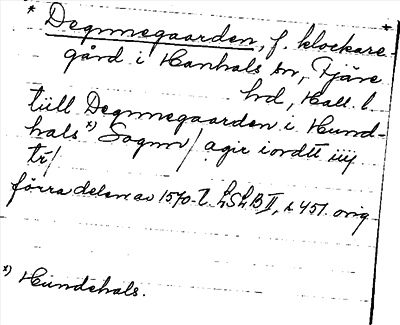 * Degnnegaarden, f. klockare- *
gård i Hanhals sn, Fjäre
hd, Hall. l.
tiill Degnnegaarden i Hund-
hals *) Sognn / agir iordtt iiij
tr /
förra delen av 1570-t. LSLB II, s 451. orig.
*) Hundehals.